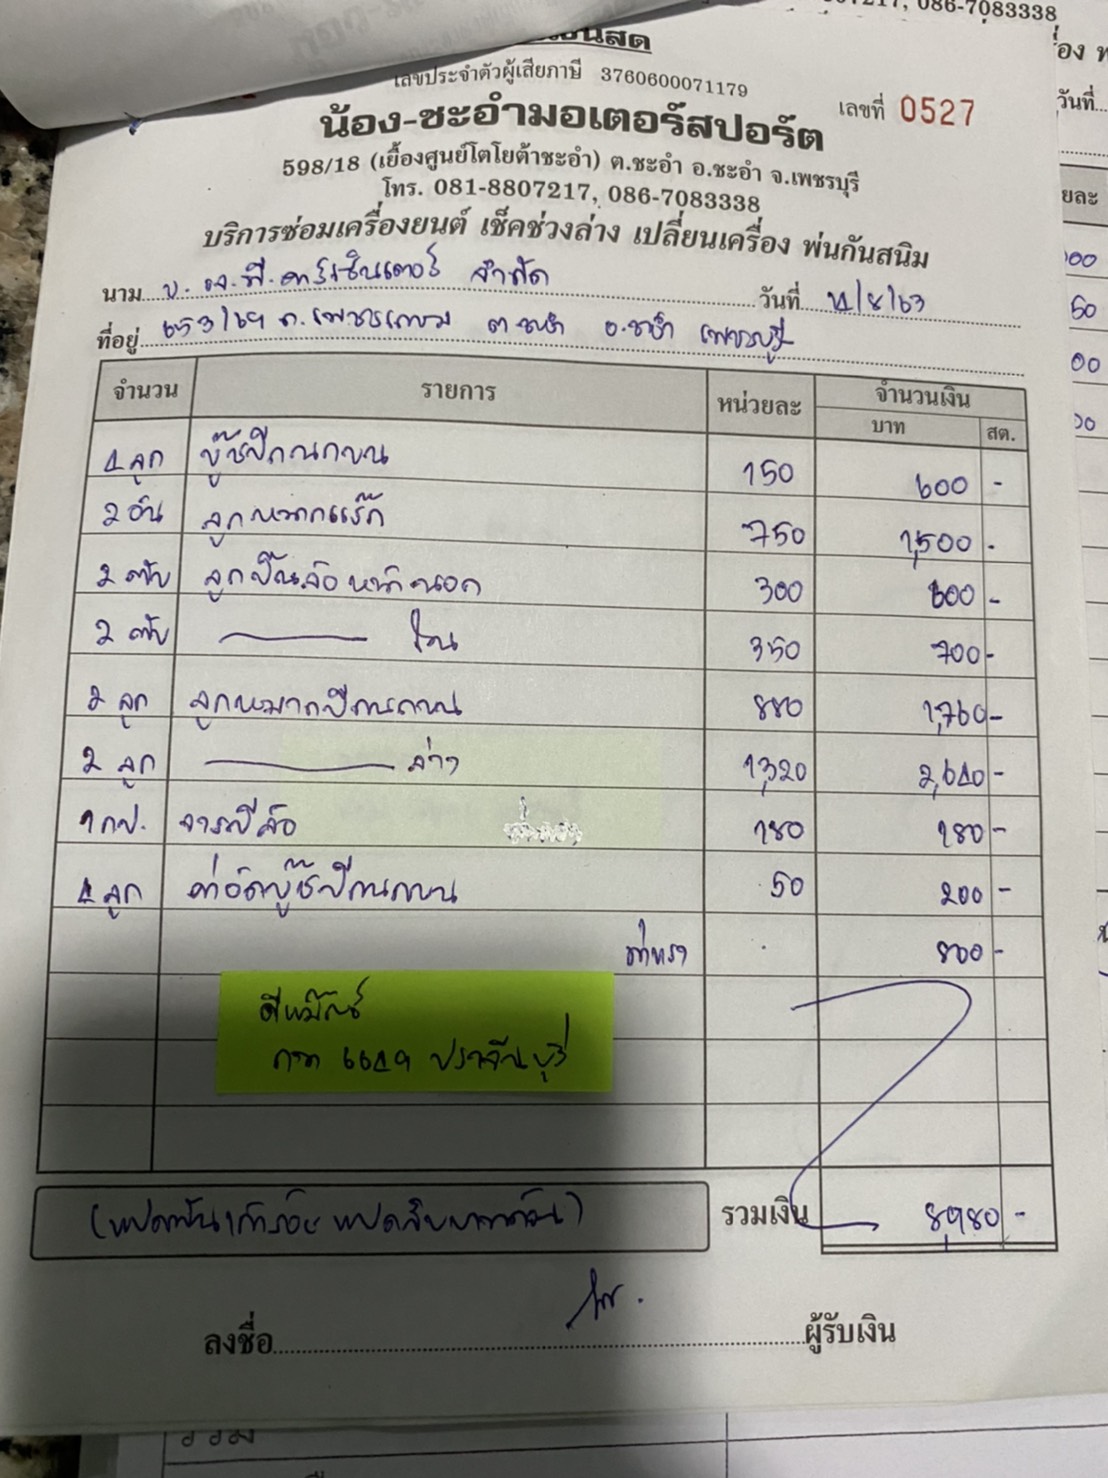 217, 086-7083338
เลขประจำตัวผู้เสียภาษี 3760600071179
เลขที่ 0527
น้อง-ชะอำมอเตอร์สปอร์ต
598/18 (เยื้องศูนย์โตโยต้าชะอำ) ต.ชะอำ อ.ชะอำ จ.เพชรบุรี
โทร. 081-8807217, 086-7083338
บริการซ่อมเครื่องยนต์ เช็คช่วงล่าง เปลี่ยนเครื่อง พ่นกันสนิม
นาม บ. เจ.พี.คาร์เซ็นเตอร์ จำกัด วันที่ 11/8/63
ที่อยู่ 653/69 ถ.เพชรเกษม ต.ชะอำ อ.ชะอำ เพชรบุรี
จำนวน รายการ หน่วยละ จำนวนเงิน
บาท สต.
4 ลูก บู๊ชปีกนกบน 150 600 -
2 อัน ลูกหมากแร็ค 750 1,500 -
2 ตลับ ลูกปืนล้อหน้านอก 300 600 -
2 ตลับ ใน 350 700 -
2 ลูก ลูกหมากปีกนกบน 880 1,760 -
2 ลูก ล่าง 1,320 2,640 -
1 กป. จารบีล้อ 180 180 -
4 ลูก ค่าอัดบู๊ชปีกนกบน 50 200 -
ค่าแรง 800 -
ดีแม๊กซ์
6649 ปราจีนบุรี
(แปดพันเก้าร้อยแปดสิบบาทถ้วน) รวมเงิน 8,980 -
ลงชื่อ ผู้รับเงิน